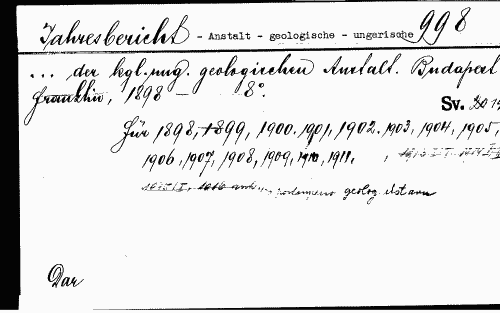 Jahresbericht - Anstalt - geologische - ungarische 998
... der kgl. ung. geologischen Anstalt. Budapest
Franklin, 1898 — 8°.
Sv.
für 1898, 1899, 1900, 1901, 1902, 1903, 1904, 1905,
1906, 1907, 1908, 1909, 1910, 1911,
geolog.
Dar